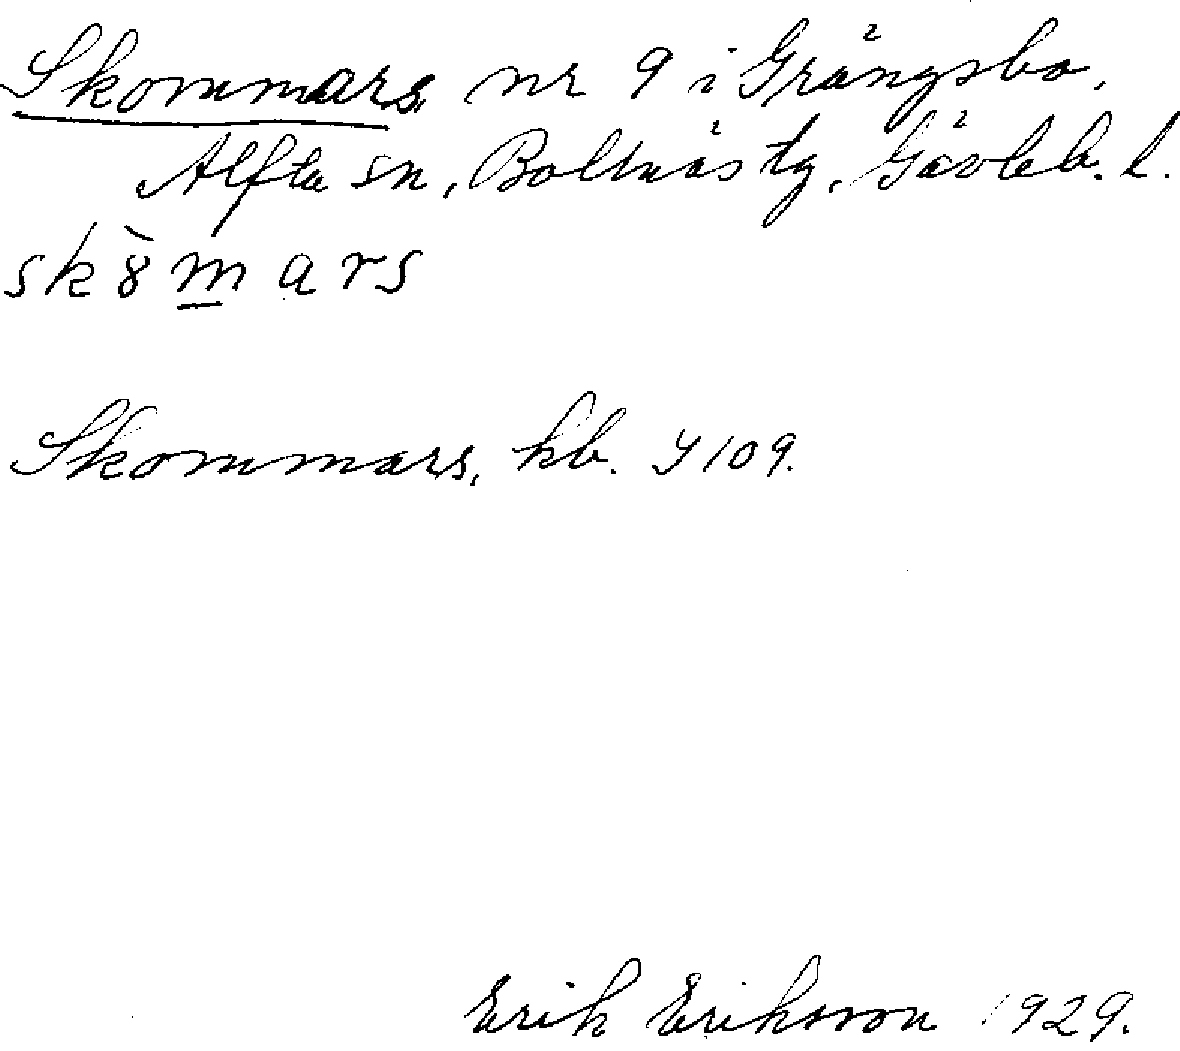 Skommars nr 9 i Grängsbo,
Alfta sn, Bollnäs tg, Gävleb. l.
sk8̀m̲ars
Skommars, kb. Y 109.
Erik Eriksson 1929.